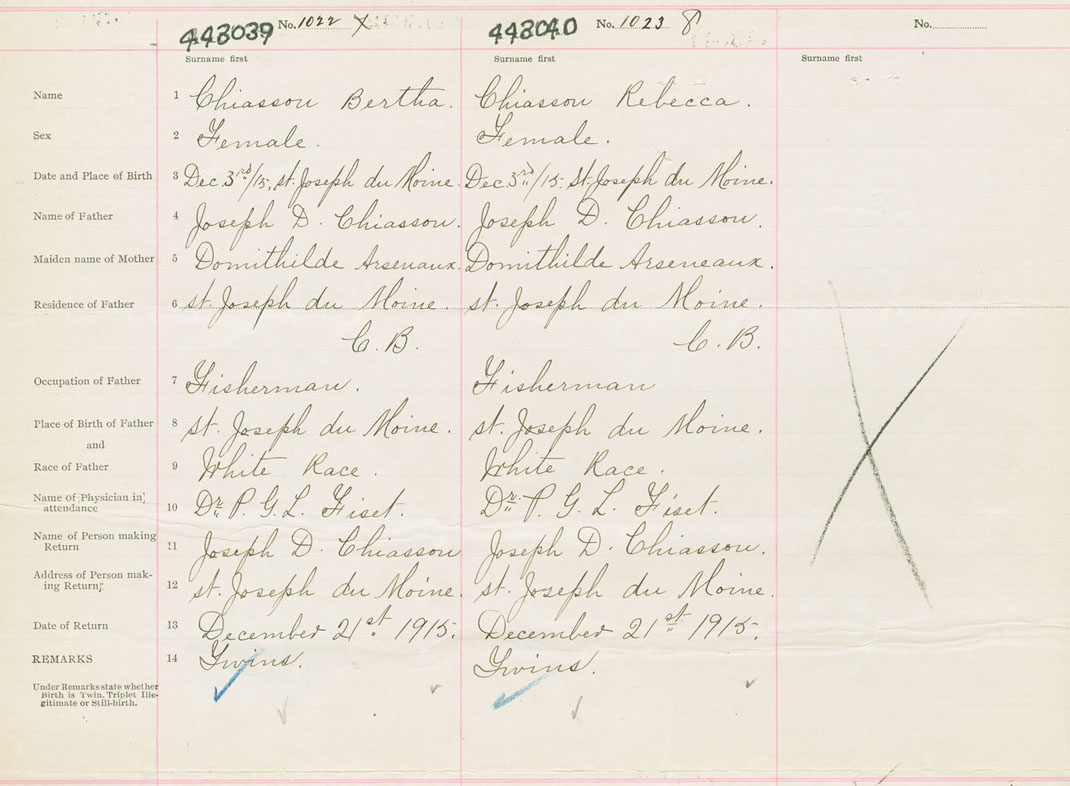 443039 No. 1022 X 443040 No. 1023 8 No.
Surname first Surname first Surname first
Name 1 Chiasson Bertha. Chiasson Rebecca.
Sex 2 Female. Female.
Date and Place of Birth 3 Dec. 3rd/15, St. Joseph du Moine. Dec. 3rd/15. St. Joseph du Moine.
Name of Father 4 Joseph D. Chiasson. Joseph D. Chiasson.
Maiden name of Mother 5 Domithilde Arsenaux. Domithilde Arseneaux.
Residence of Father 6 St. Joseph du Moine. St. Joseph du Moine.
C. B. C. B.
Occupation of Father 7 Fisherman. Fisherman
Place of Birth of Father 8 St. Joseph du Moine. St. Joseph du Moine.
and
Race of Father 9 White Race. White Race.
Name of Physician in
attendance 10 Dr. P. G. L. Fiset. Dr. P. G. L. Fiset.
Name of Person making
Return 11 Joseph D. Chiasson Joseph D. Chiasson.
Address of Person mak-
ing Return 12 St. Joseph du Moine. St. Joseph du Moine.
Date of Return 13 December 21st. 1915. December 21st 1915.
REMARKS 14 Twins. Twins.
Under Remarks state whether
Birth is Twin, Triplet Ille-
gitimate or Still-birth.